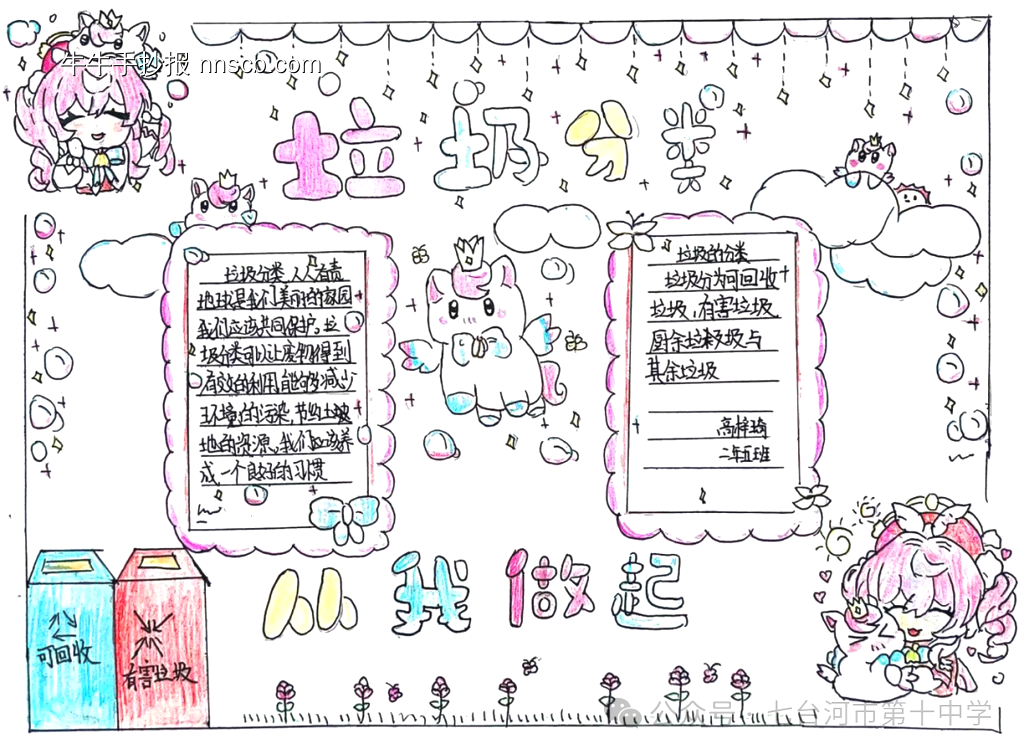 牛牛手抄报 nnscb.com
垃圾分类
垃圾分类 人人有责
地球是我们美丽的家园
我们应该共同保护。垃
圾分类可以让废物得到
有效的利用,能够减少
环境的污染,节约土地
地的资源。我们应该养
成一个良好的习惯
垃圾的分类
垃圾分为可回收
垃圾,有害垃圾,
厨余垃圾与
其余垃圾
高梓琦
二年五班
从我做起
可回收
有害垃圾
公众号·七台河市第十中学